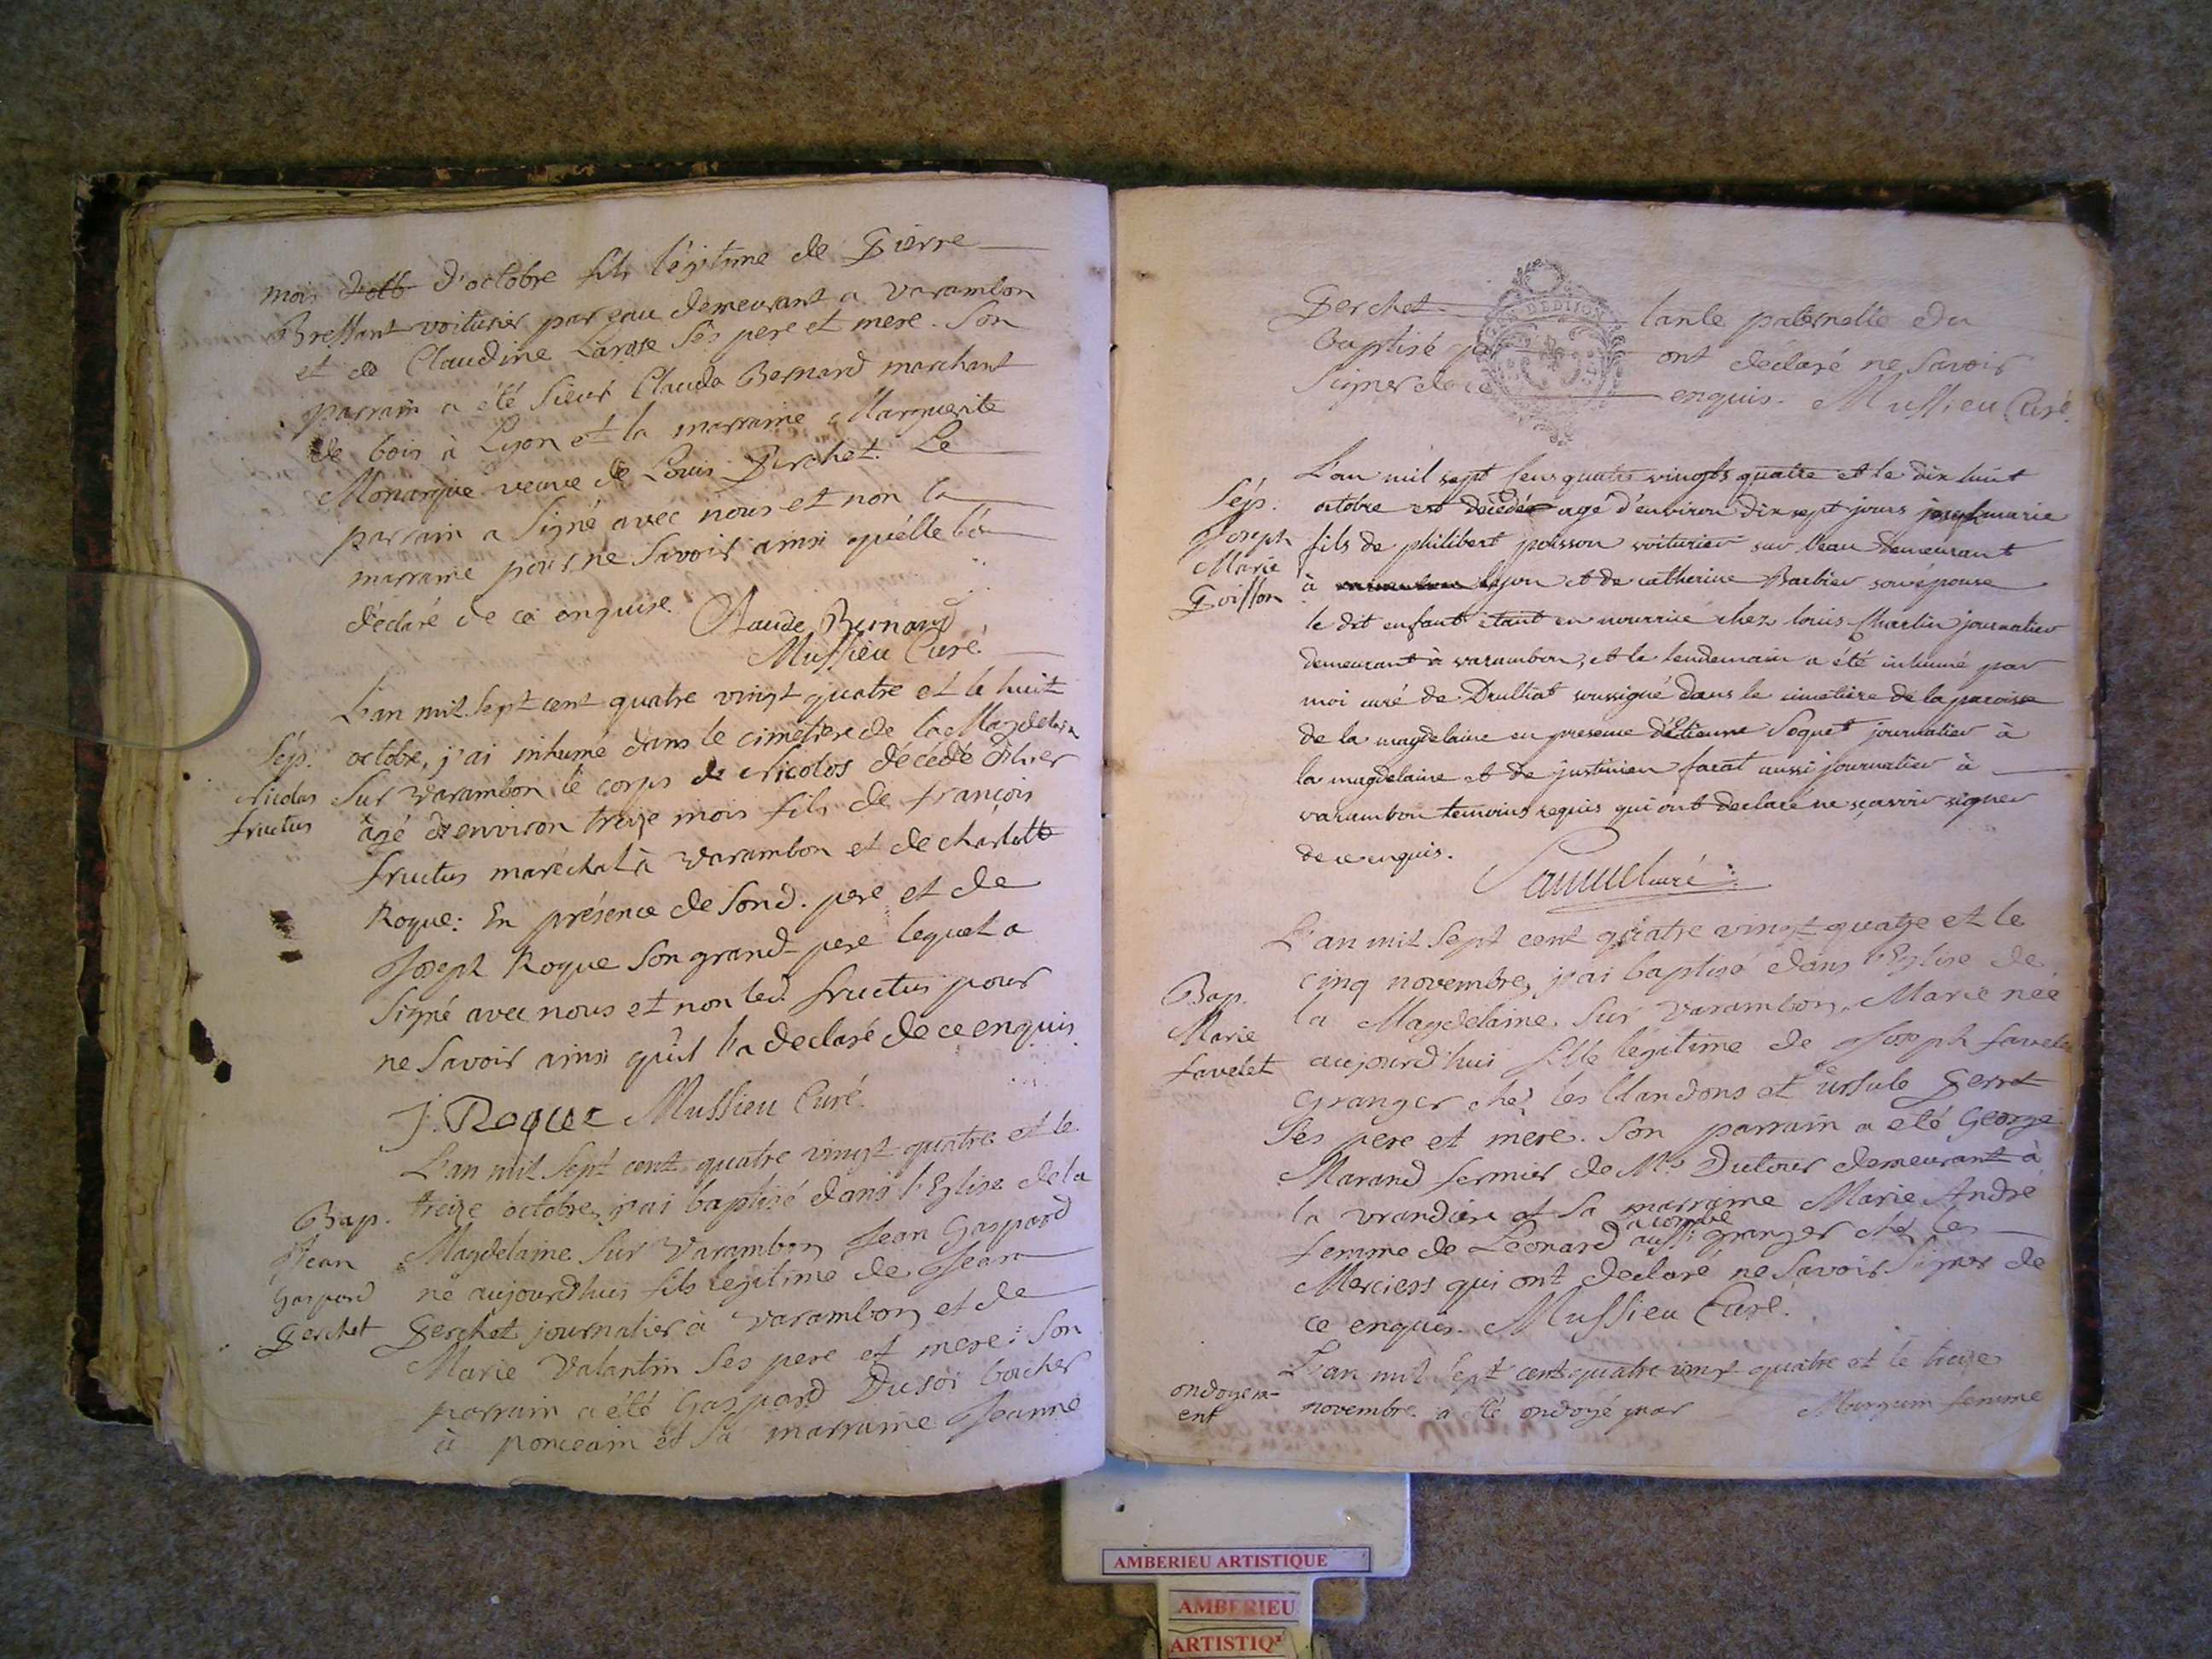 mois d'octb d'octobre fils légitime de Pierre
Bressant voiturier par eau demeurant a varambon
et de Claudine Larose Ses pere et mere. Son
parrain a été Sieur Claude Bernard marchant
de bois à Lyon et la marraine Marguerite
Monarque veuve de Louis Perchet. Le
parrain a Signé avec nous et non la
marraine pour ne Savoir ainsi qu'élle l'a
déclaré de ce enquise. Claude Bernard
Mussieu Curé.
L'an mil Sept cent quatre vingt quatre et le huit
Sép. octobre, j'ai inhumé dans le cimetiere de la Magdelain
Nicolas Sur Varambon le corps de Nicolas décédé hier
fructus âgé d'environ treize mois fils de françois
fructus maréchal à varambon et de charlotte
Roque: En présence de Sond. pere et de
Joseph Roque Son grand-pere lequel a
Signé avec nous et non led. fructus pour
ne Savoir ainsi qu'il l'a declaré de ce enquis.
J. Roque Mussieu Curé.
L'an mil Sept cent quatre vingt quatre et le
Bap. treize octobre, j'ai baptisé dans l'Eglise de la
Jean Magdelaine Sur Varambon Jean Gaspard
Gaspard né aujourdhui fils legitime de Jean
Perchet Perchet journalier à varambon et de
Marie Valantin Ses pere et mere: Son
parrain a été Gaspard Dusoi bocher
à ponceain et Sa marraine Jeanne
Perchet tante paternelle du
DE DIJON
Baptisé ont déclaré ne Savoir
Signer de ce enquis. Mussieu Curé.
L'an mil sept Cens quatre vingts quatre et le dix huit
Sép. octobre est décédé agé d'environ dix sept jours joseph marie
Joseph fils de philibert poisson voiturier sur l'eau demeurant
Marie à Lyon et de catherine Barbier son épouse
Poisson le dit enfant étant en nourrice chez louis Charlin journalier
demeurant à varambon, et le lendemain a été inhumé par
moi curé de Druillat soussigné dans le cimetiere de la paroisse
de la magdelaine en presence d'Etienne Soquet journalier à
la magdelaine et de justinien facat aussi journalier à
varambon temoins requis qui ont declaré ne sçavoir signer
de ce enquis.
L'an mil Sept cent quatre vingt quatre et le
cinq novembre, j'ai baptisé dans l'Eglise de
Bap. la Magdelaine Sur Varambon, Marie née
Marie aujourd'hui fille légitime de Joseph favelet
favelet Granger chez les blandons et ursule Perret
Ses pere et mere. Son parrain a été George
Marand fermier de Mr. Dutour demeurant à
la vrandiere et Sa marraine Marie André
femme de Leonard acombe aussi granger chez les
Merciers qui ont declaré ne Savoir Signer de
ce enquis. Mussieu Curé.
L'an mil Sept cent quatre vingt quatre et le treize
ondoyem- novembre a été ondoyé par Murgum femme
ent
AMBERIEU ARTISTIQUE
AMBERIEU
ARTISTIQ